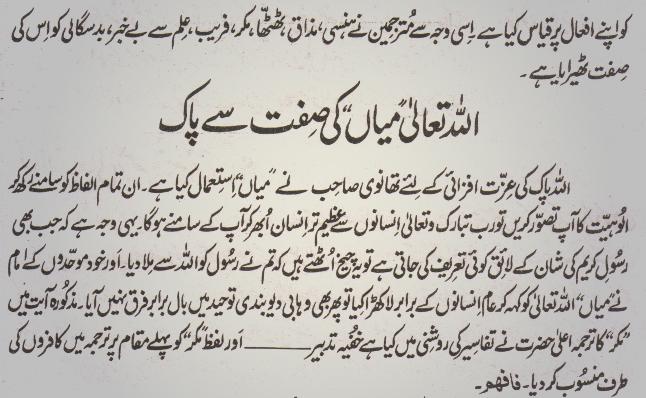 کو اپنے افعال پر قیاس کیا ہے اِسی وجہ سے مُترجمین نے ہنسی، مذاق، ٹھٹھا، مکر، فریب، عِلم سے بے خبر، بد سگالی کو اس کی
صِفت ٹھیرایا ہے۔
اللہ تعالیٰ ”میاں“ کی صِفت سے پاک
اللہ پاک کی عِزّت افزائی کے لئے تھانوی صاحب نے ”میاں“ اِستعمال کیا ہے۔ ان تمام الفاظ کو سامنے رکھ کر
اُلوہیّت کا آپ تصوّر کریں تو رب تبارک و تعالیٰ اِنسانوں سے عظیم تر انسان اُبھر کر آپ کے سامنے ہوگا۔ یہی وجہ ہے کہ جب بھی
رسُول کریم کی شان کے لائق کوئی تعریف کی جاتی ہے تو یہ چیخ اُٹھتے ہیں کہ تم نے رسُول کو اللہ سے مِلا دیا۔ اَور خود موحّدوں کے امام
نے ”میاں“ اللہ تعالیٰ کو کہہ کر عام اِنسانوں کے برابر لا کھڑا کیا تو پھر بھی وہابی دیوبندی توحید میں بال برابر فرق نہیں آیا۔ مذکُورہ آیت میں
”مکر“ کا ترجمہ اعلیٰ حضرت نے تفاسیر کی روشنی میں کیا ہے خُفیہ تدبیر ______ اَور لفظ ”مکر“ کو پہلے مقام پر ترجمہ میں کافروں کی
طرف منسُوب کر دیا۔ فافہم۔